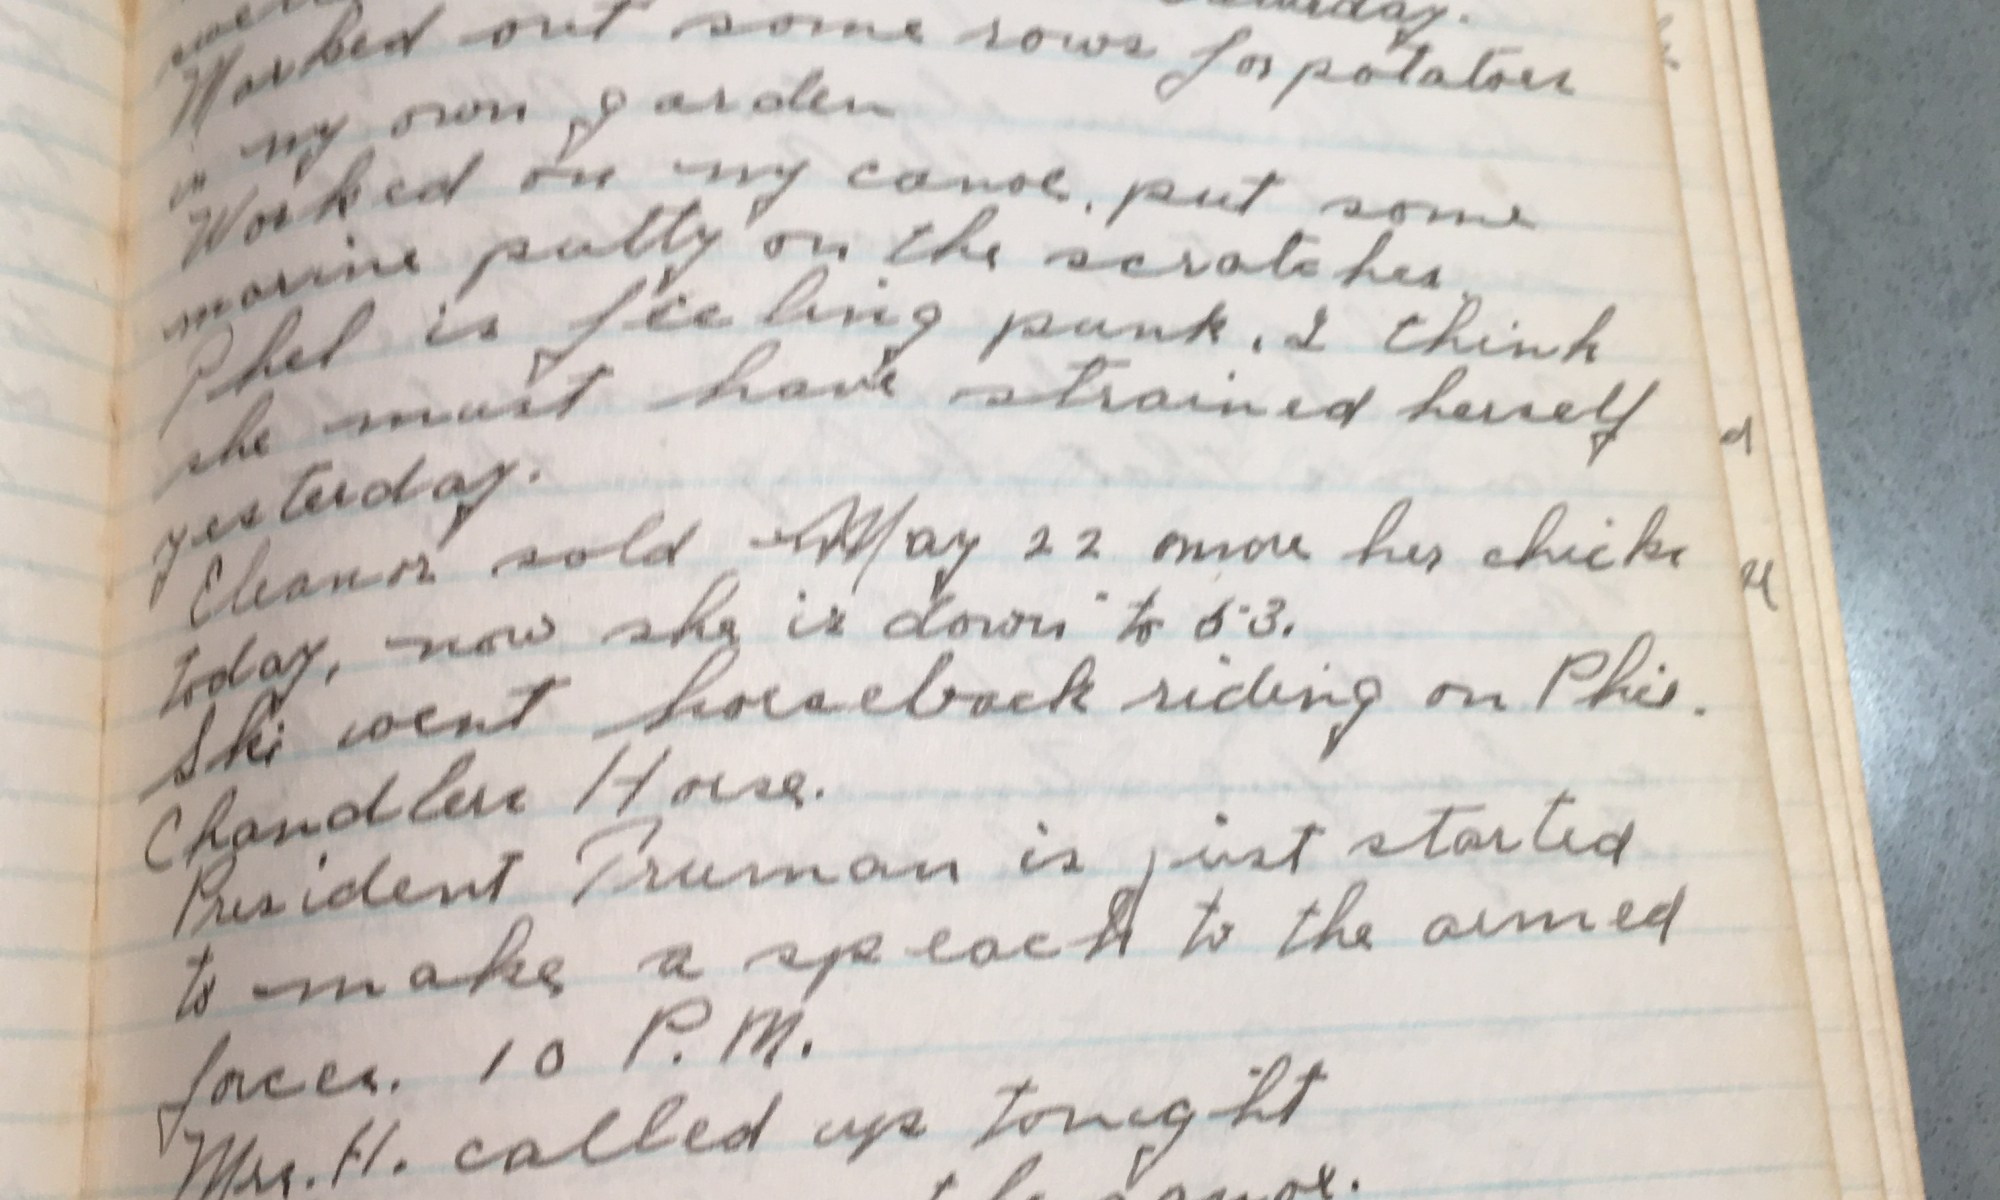 Worked out some rows for potatoes
in my own garden
Worked on my canoe, put some
marine putty on the scratches
Phel is feeling punk. I think
she must have strained herself
yesterday.
Eleanor sold May 22 more her chicks
today, now she is down to 53.
Ski went horseback riding on Phis.
Chandlers Horse.
President Truman is just started
to make a speach to the armed
forces. 10 P.M.
Mrs. H. called up tonight
canoe.